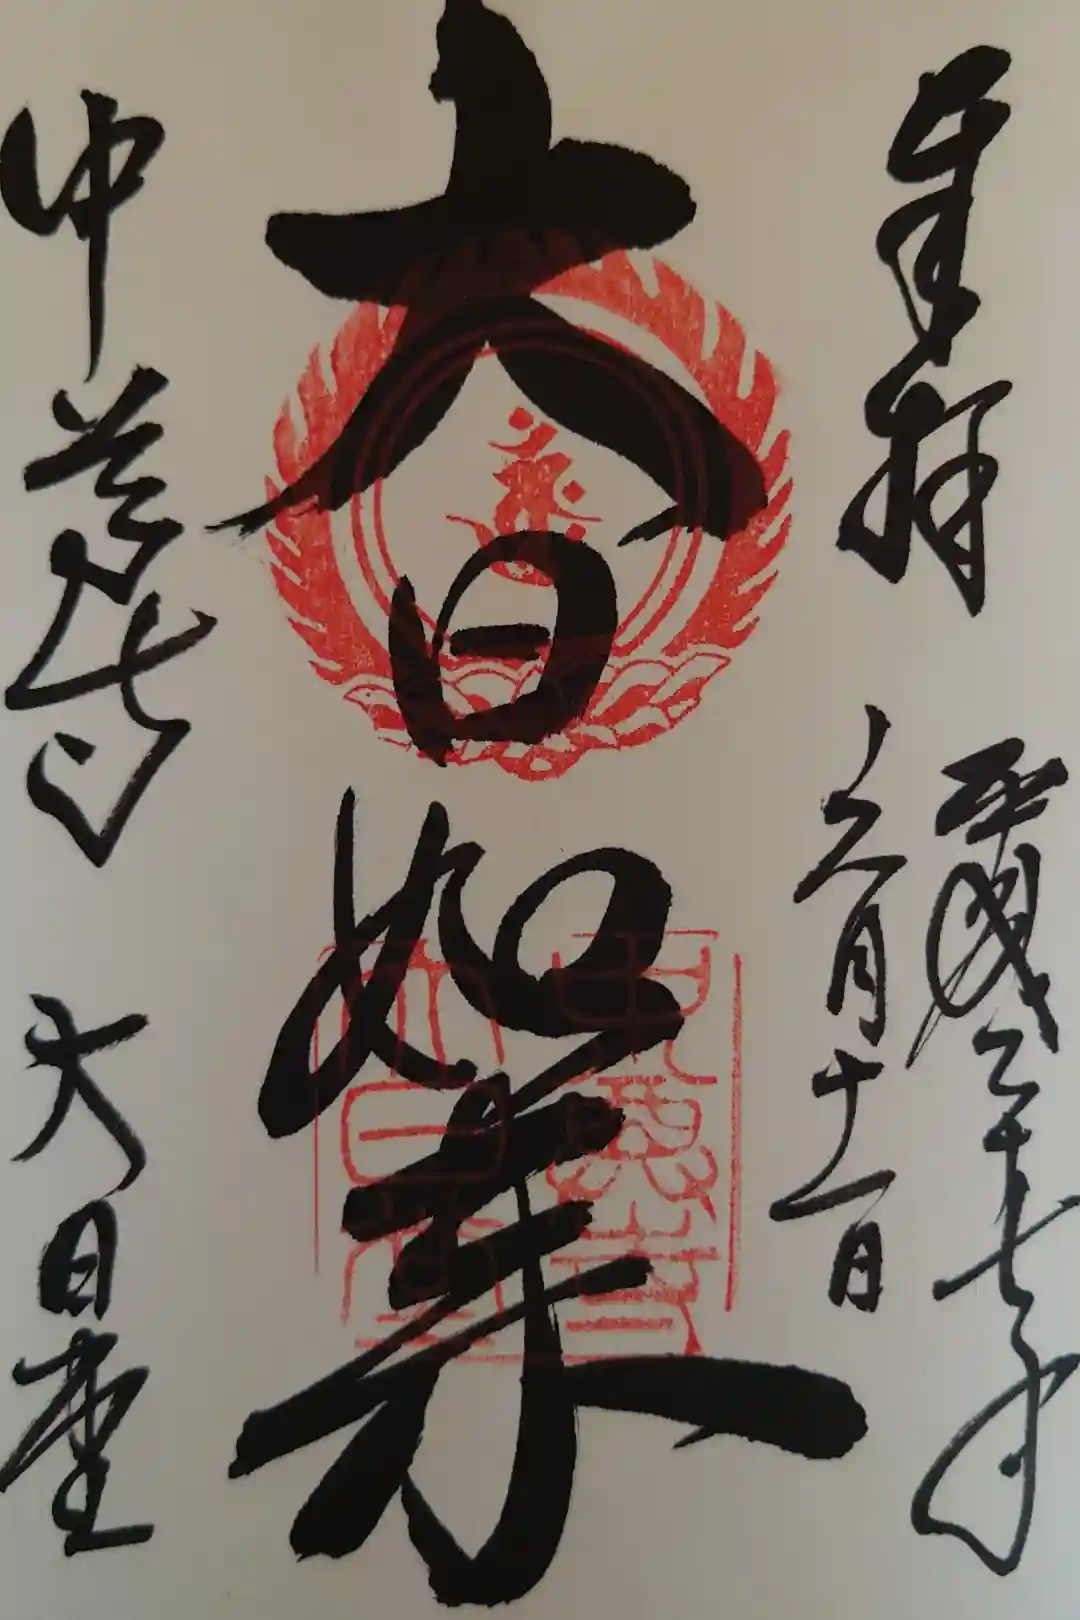 奉拝
平成二十七年
六月十一日
大日如来
大日堂